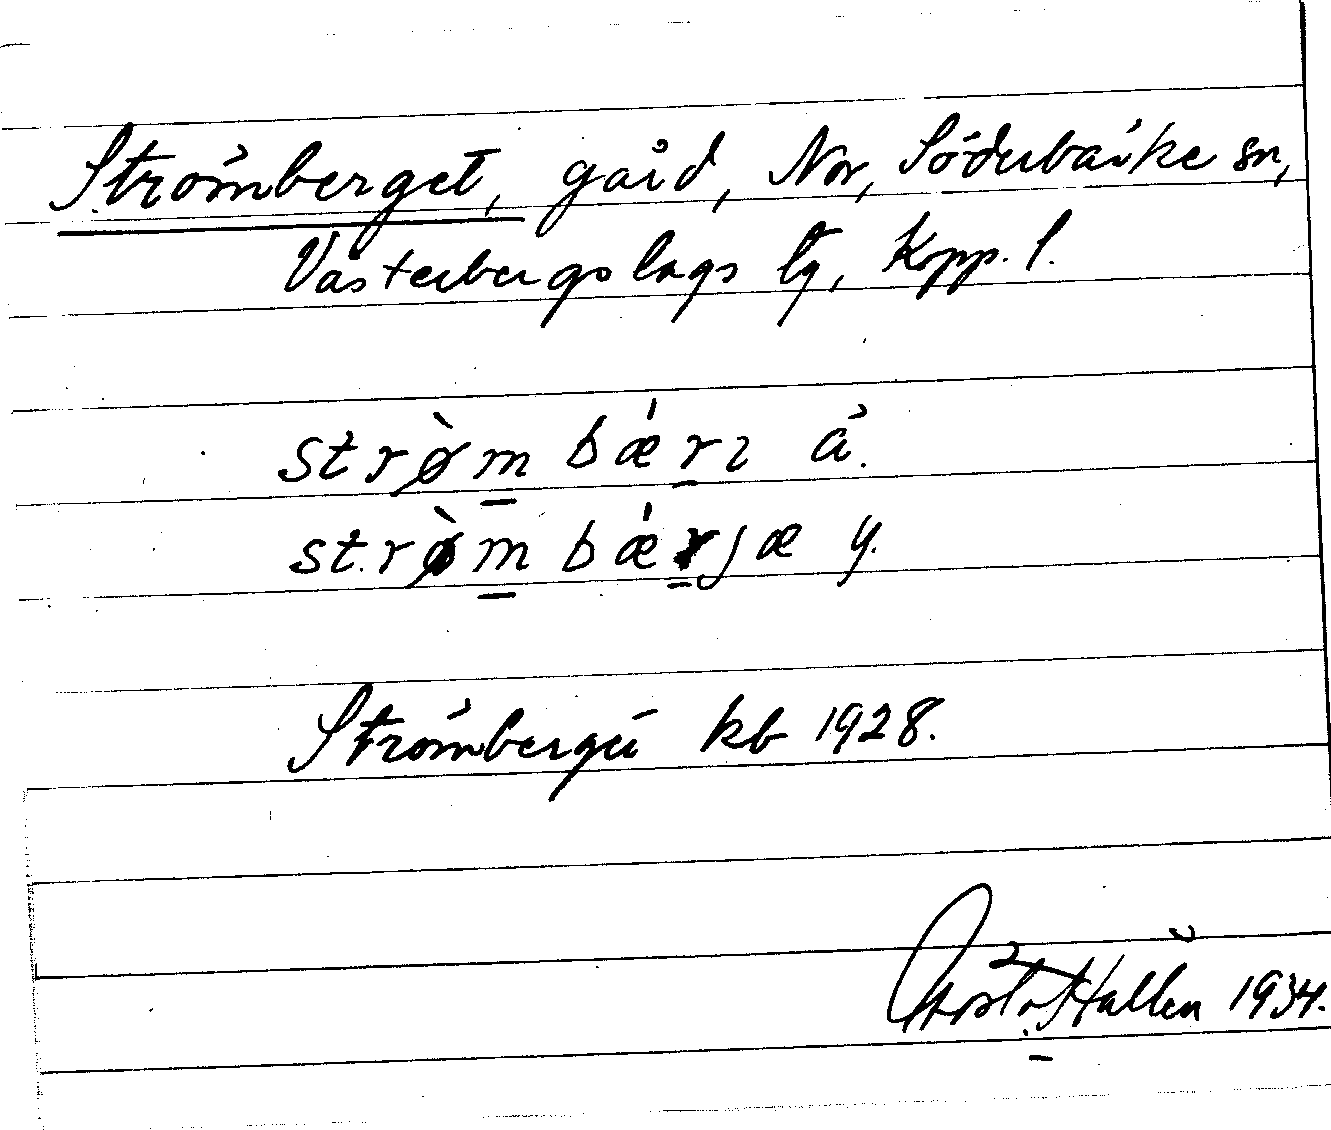 Strömberget, gård, Nor, Söderbärke sn,
Västerbergslags tg, Kopp. l.
strø̀mbǽrı ä.
strø̀mbǽrjæ y.
Strömberget kb 1928.
Gösta Hallén 1934.